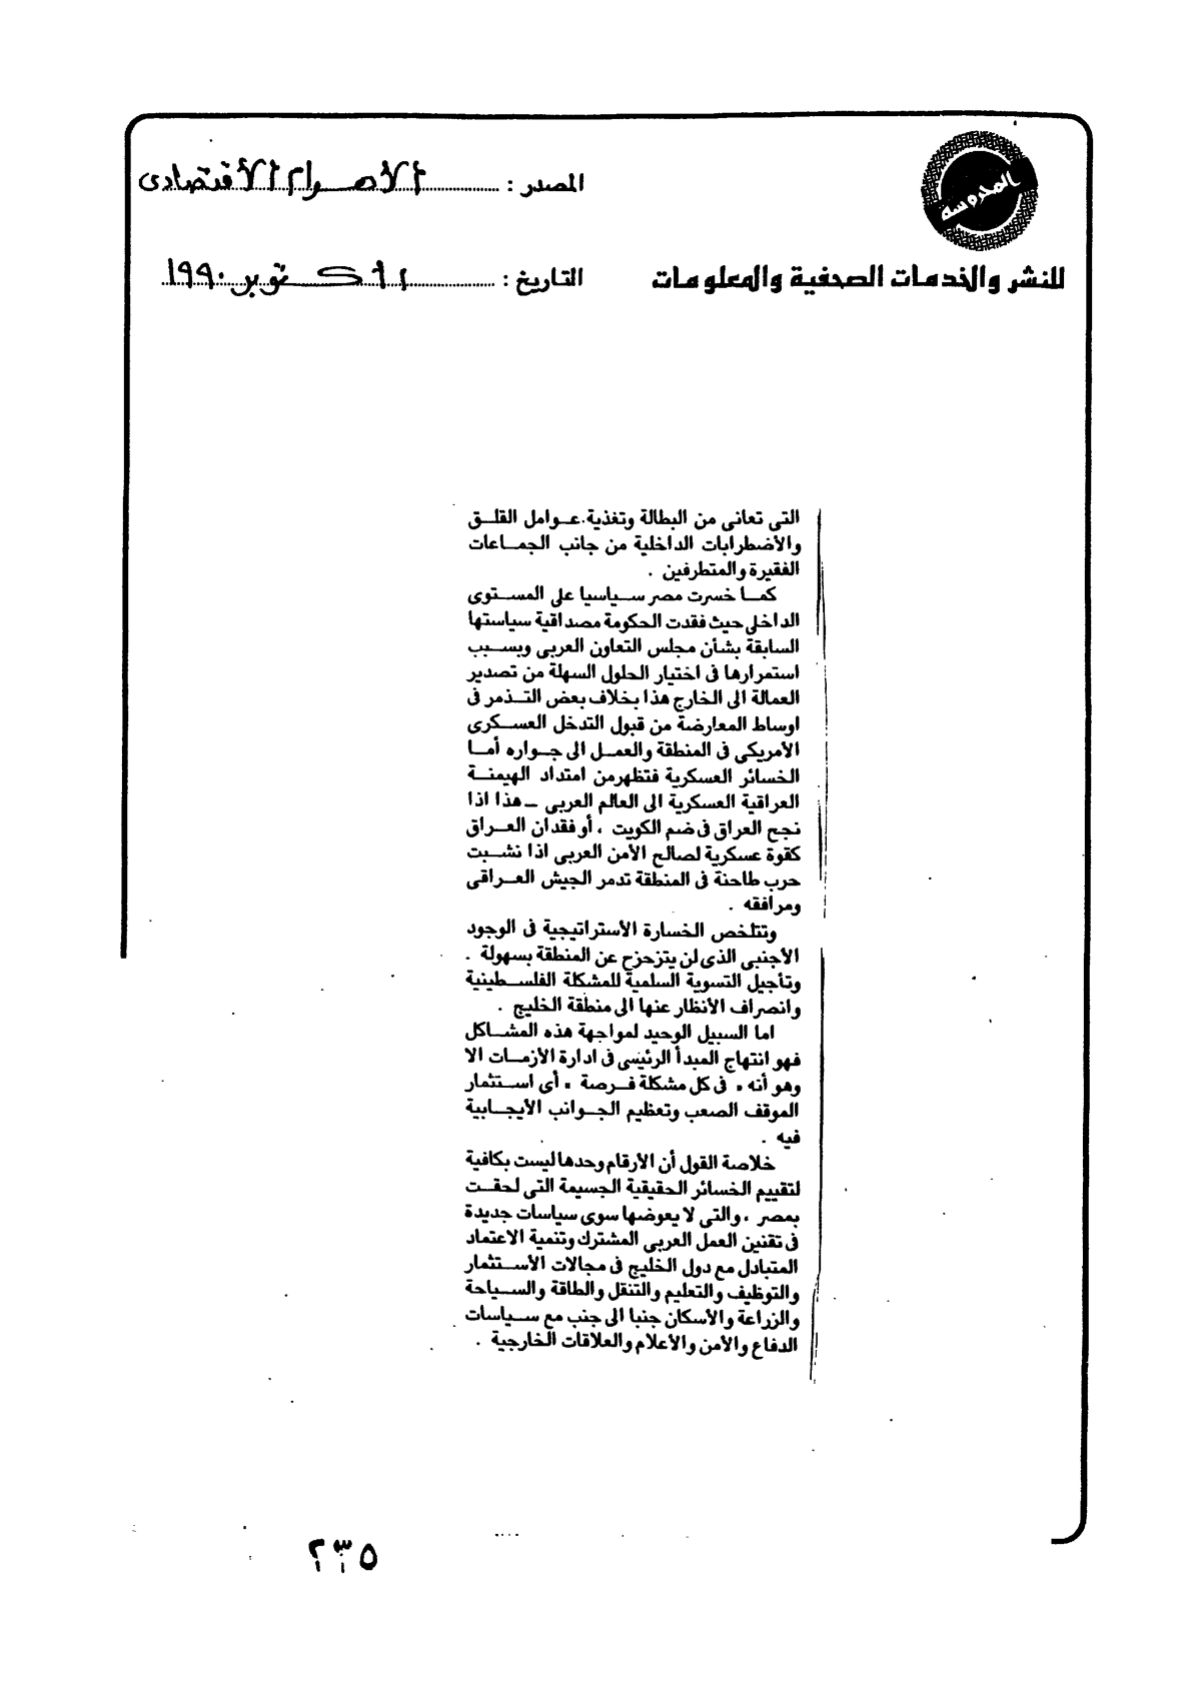 المحروسة
للنشر والخدمات الصحفية والمعلومات
المصدر : الأهرام الاقتصادى
التاريخ : ١ أكتوبر ١٩٩٠
التى تعانى من البطالة وتغذية عوامل القلق
والأضطرابات الداخلية من جانب الجماعات
الفقيرة والمتطرفين .
كما خسرت مصر سياسيا على المستوى
الداخلى حيث فقدت الحكومة مصداقية سياستها
السابقة بشأن مجلس التعاون العربى وبسبب
استمرارها فى اختيار الحلول السهلة من تصدير
العمالة الى الخارج هذا بخلاف بعض التذمر فى
اوساط المعارضة من قبول التدخل العسكرى
الأمريكى فى المنطقة والعمل الى جواره أما
الخسائر العسكرية فتظهر من امتداد الهيمنة
العراقية العسكرية الى العالم العربى - هذا اذا
نجح العراق فى ضم الكويت ، أو فقدان العراق
كقوة عسكرية لصالح الأمن العربى اذا نشبت
حرب طاحنة فى المنطقة تدمر الجيش العراقى
ومرافقه .
وتتلخص الخسارة الأستراتيجية فى الوجود
الأجنبى الذى لن يتزحزح عن المنطقة بسهولة .
وتأجيل التسوية السلمية للمشكلة الفلسطينية
وانصراف الأنظار عنها الى منطقة الخليج .
اما السبيل الوحيد لمواجهة هذه المشاكل
فهو انتهاج المبدأ الرئيسى فى ادارة الأزمات الا
وهو أنه « فى كل مشكلة فرصة » أى استثمار
الموقف الصعب وتعظيم الجوانب الأيجابية
فيه .
خلاصة القول أن الأرقام وحدها ليست بكافية
لتقييم الخسائر الحقيقية الجسيمة التى لحقت
بمصر ، والتى لا يعوضها سوى سياسات جديدة
فى تقنين العمل العربى المشترك وتنمية الاعتماد
المتبادل مع دول الخليج فى مجالات الأستثمار
والتوظيف والتعليم والتنقل والطاقة والسياحة
والزراعة والأسكان جنبا الى جنب مع سياسات
الدفاع والأمن والأعلام والعلاقات الخارجية .
٢٣٥